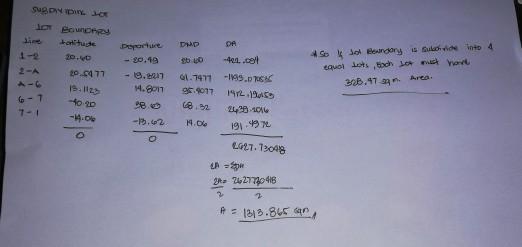 SUBDIVIDING LOT
LOT BOUNDARY
Line Latitude Departure DMD DA
1-2 20.60 -20.49 20.60 -422.094
2-A 20.5477
A-6 13.1123 14.8017
6-7 -40.20 38.63 68.32 2639.2016
7-1 -14.06 -13.62 14.06 191.4972
0 0
2627.730418
2A =
2A = 2627.730418
2 2
A = 1313.865 sqm
Also if Lot Boundary is subdivide into 4
equal Lots, Each Lot must have
328.47 sqm. Area.